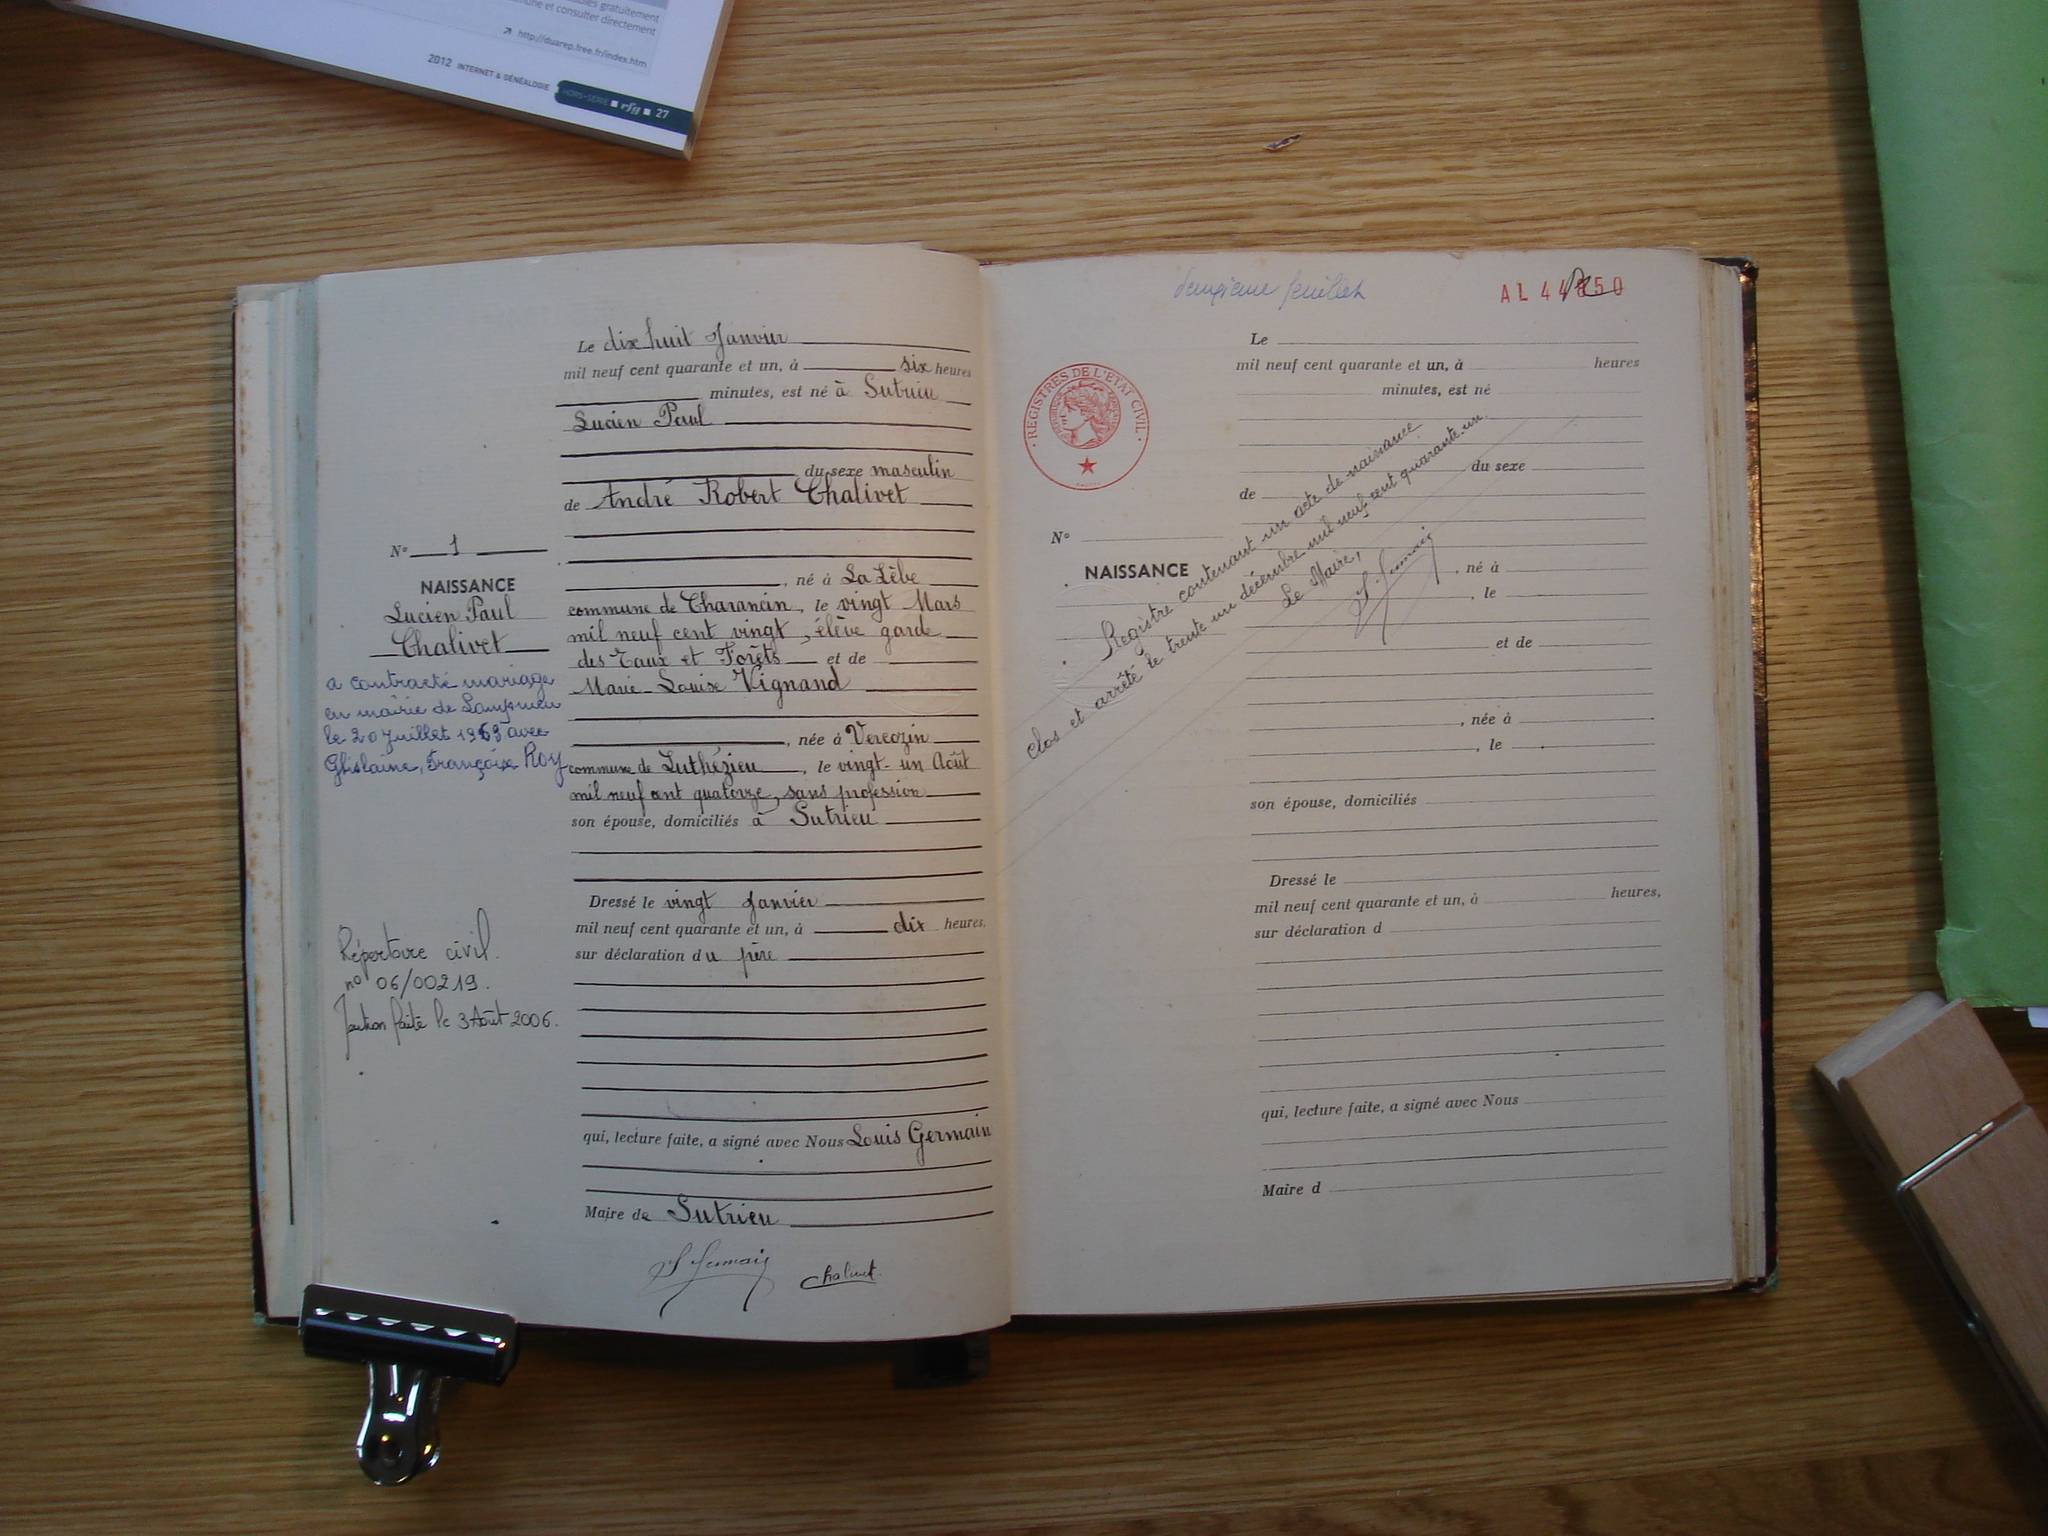 bles gratuitement
une et consulter directement
http://duarep.free.fr/index.htm
2012 INTERNET & GÉNÉALOGIE HORS-SÉRIE rfg 27
Le dix huit Janvier
mil neuf cent quarante et un, à six heures
minutes, est né à Sutrieu
Lucien Paul
du sexe masculin
de André Robert Chalivet
N° 1
NAISSANCE
Lucien Paul
Chalivet
, né à La Lèbe
commune de Charancin, le vingt Mars
mil neuf cent vingt, élève garde
des Eaux et Forêts et de
Marie-Louise Vignand
, née à Vercozin
commune de Luthézieu, le vingt-un Août
mil neuf cent quatorze, sans profession
son épouse, domiciliés à Sutrieu
a contracté mariage
en mairie de
le 20 juillet 1963 avec
Ghislaine, Françoise Roy
Dressé le vingt Janvier
mil neuf cent quarante et un, à dix heures,
sur déclaration du père
Répertoire civil.
n° 06/00219.
faite le 3 Août 2006.
qui, lecture faite, a signé avec Nous Louis Germain
Maire de Sutrieu
Chalivet
deuxième feuillet
AL 44 50
REGISTRES DE L'ETAT CIVIL
Le
mil neuf cent quarante et un, à heures
minutes, est né
du sexe
de
N°
NAISSANCE
, né à
, le
et de
, née à
, le
son épouse, domiciliés
Registre contenant un acte de naissance
clos et arrêté le trente un décembre mil neuf cent quarante-un.
Le Maire,
Dressé le
mil neuf cent quarante et un, à heures,
sur déclaration d
qui, lecture faite, a signé avec Nous
Maire d